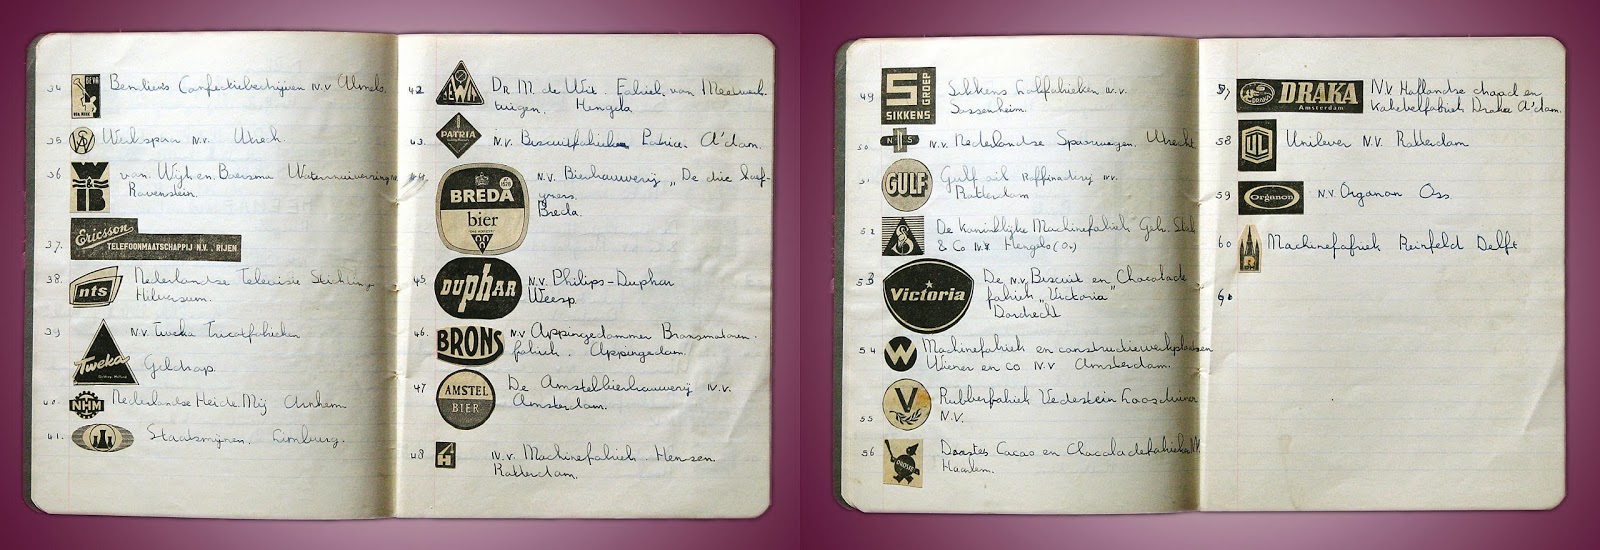 34 BEVA Bendiens Confectiebedrijven N.V. Almelo.
35 Werkspoor N.V. Utrech.
36 W&B van Wijk en Boersma Waterzuivering N.V.
Ravenstein.
37. Ericsson
TELEFOONMAATSCHAPPIJ N.V. . RIJEN
38. nts Nederlandse Televisie Stichting
Hilversum.
39 N.V. Tweka Tricotfabrieken
Tweka Geldrop.
40. NHM Nederlandse Heide. Mij Arnhem
41. Staatsmijnen. Limburg.
42 DEWIT Dr. M. de Wit. Fabriek van Meetwerk-
tuigen. Hengelo
43. PATRIA N.V. Biscuitfabieken Patria A'dam.
44. BREDA bier N.V. Bierbrouwerij „De drie hoef-
ijzers.
Breda.
45. DUPHAR N.V. Philips-Duphar
Weesp.
46. BRONS N.V Appingedammer Bronsmotoren.
fabriek. Appingedam.
47 AMSTEL BIER De Amstelbierbrouwerij N.V.
Amsterdam.
48 H N.V. Machinefabriek. Hensen
Rotterdam.
49 S GROEP SIKKENS Sikkens Lakfabrieken N.V.
Sassenheim.
50. NS N.V. Nederlandse Spoorwegen. Utrecht
51 GULF Gulf oil Raffinaderij N.V.
Rotterdam
52 De Koninklijke Machinefabriek Gebr. Stork
& Co N.V. Hengelo (O.)
53 Victoria De N.V. Biscuit en Chocolade
fabriek „Victoria"
Dordrecht
54 W Machinefabriek en constructiewerkplaatsen
Wiener en Co N.V Amsterdam.
55 V Rubberfabriek Vredestein Loosduinen
N.V.
56 DROSTE Drostes Cacao en Chocoladefabrieken N.V.
Haarlem.
57 DRAKA DRAKA Amsterdam N.V Hollandse draad en
Kabelfabriek Draka A'dam.
58 UL Unilever N.V. Rotterdam
59 Organon N.V. Organon Oss.
60 Machinefabriek Reinfeld Delft
61